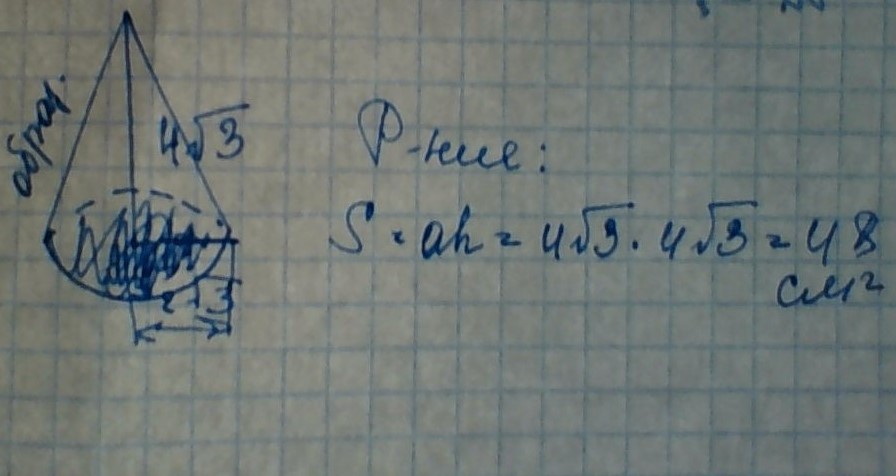 образ.
4√3
2√3
Р-ние:
S = ah = 4√3 · 4√3 = 48
см²